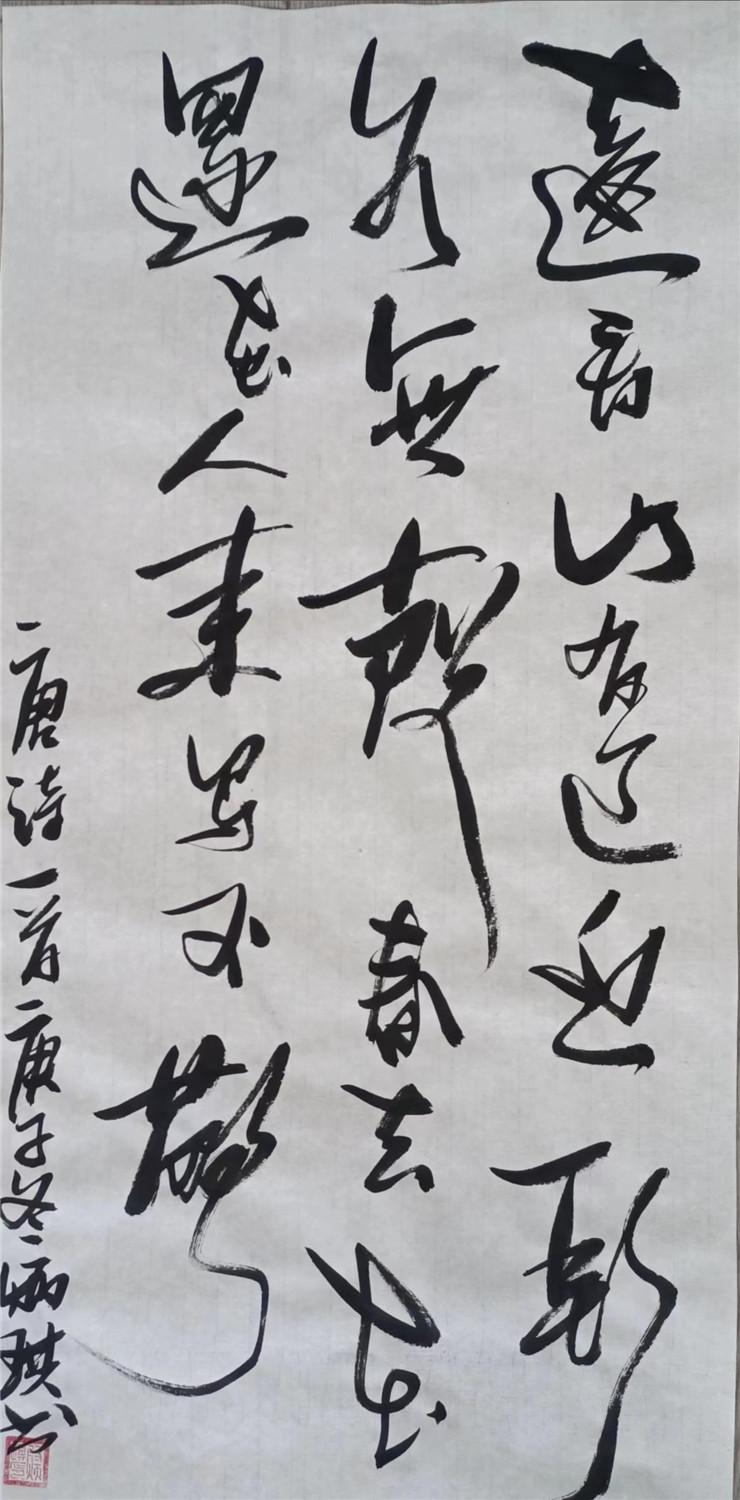 遠看山有色近聽
水無聲春去花
還在人来鸟不驚
唐诗一首庚子冬炳琪书